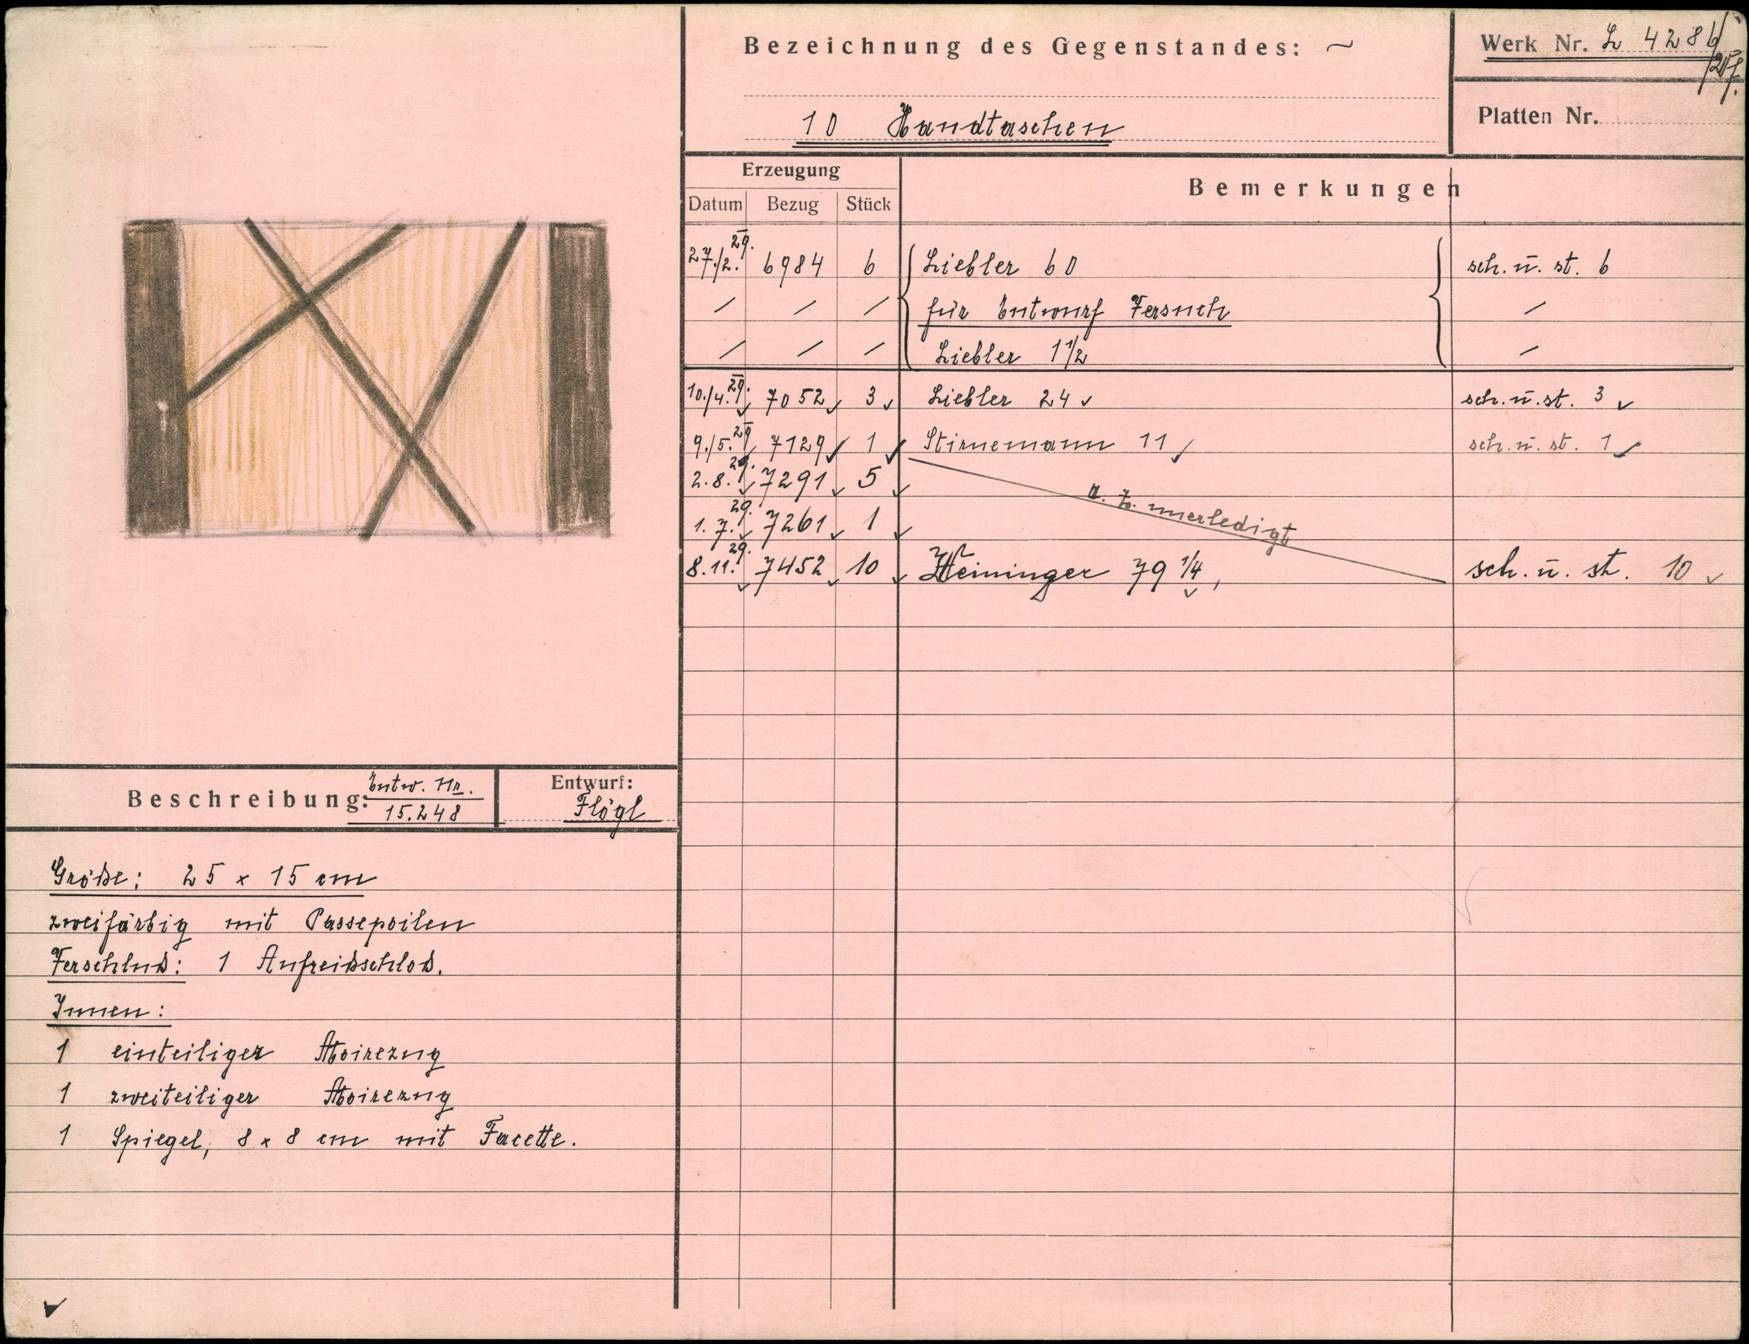 Bezeichnung des Gegenstandes: ~
10 Handtaschen
Werk Nr. L 4286
Platten Nr.
Erzeugung
Datum Bezug Stück
Bemerkungen
27./2. 29. 6984 6 Liebler 60 sch. u. st. 6
/ / / für Entwurf Versuch /
/ / / Liebler 1 1/2 /
10./4. 29. 7052 3 Liebler 24 sch. u. st. 3
9./5. 29 7129 1 Stirnemann 11 sch. u. st. 1
2. 8. 29. 7291 5
a. Z. unerledigt
1. 7. 29. 7261 1
8. 11. 29. 7452 10 Weininger 79 1/4, sch. u. st. 10
Beschreibung: Entw. Nr. 15.248
Entwurf: Flögl
Größe: 25 x 15 cm
zweifärbig mit Passepoilen
Verschluß: 1 Aufreißschloß.
Innen:
1 einteiliger Moirezug
1 zweiteiliger Moirezug
1 Spiegel, 8 x 8 cm mit Facette.